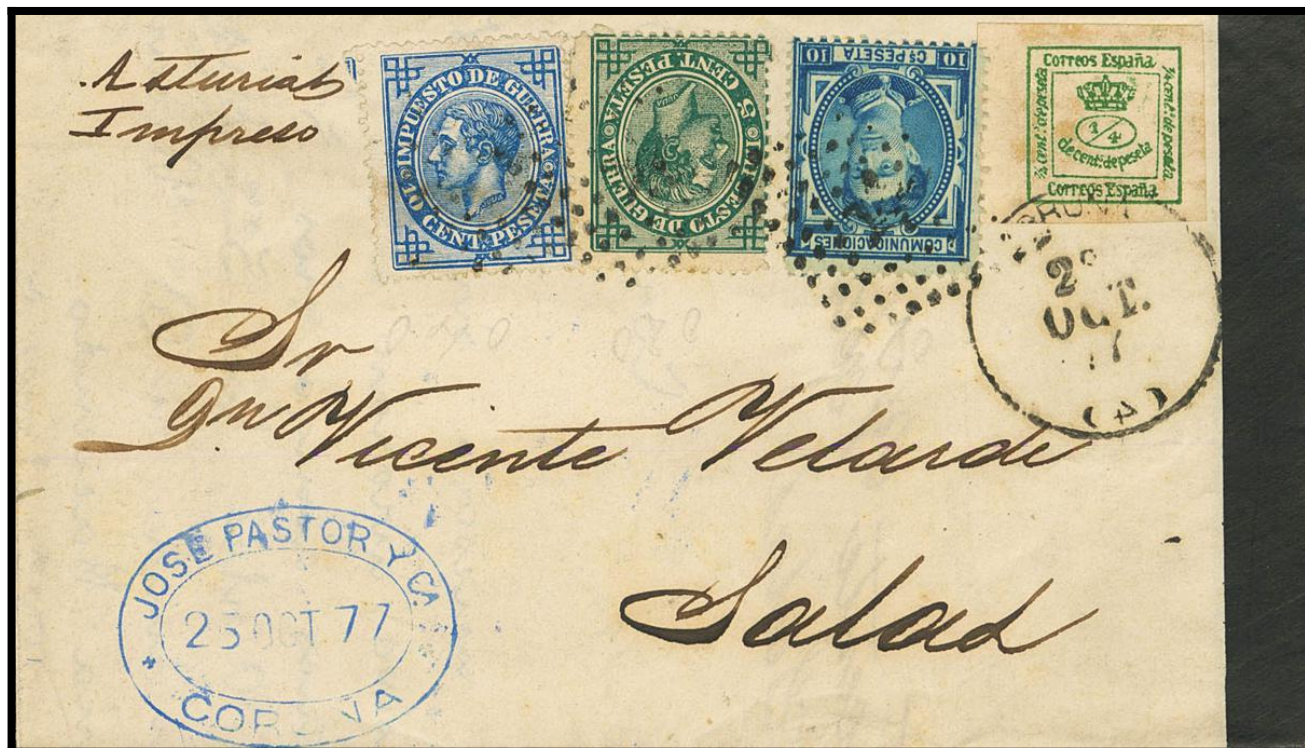 Asturias
Impreso
IMPUESTO DE GUERRA
10 CENT. PESETA
IMPUESTO DE GUERRA
5 CENT. PESETA
10 Cs PESETA 10
COMUNICACIONES
Correos España
¼ cent.º de peseta
¼ cent.º de peseta
1/4
de cent.º de peseta
Correos España
OCT.
(4)
Sr
Dn Vicente Velarde
Salas
JOSE PASTOR Y CA.
25 OCT 77
CORUÑA